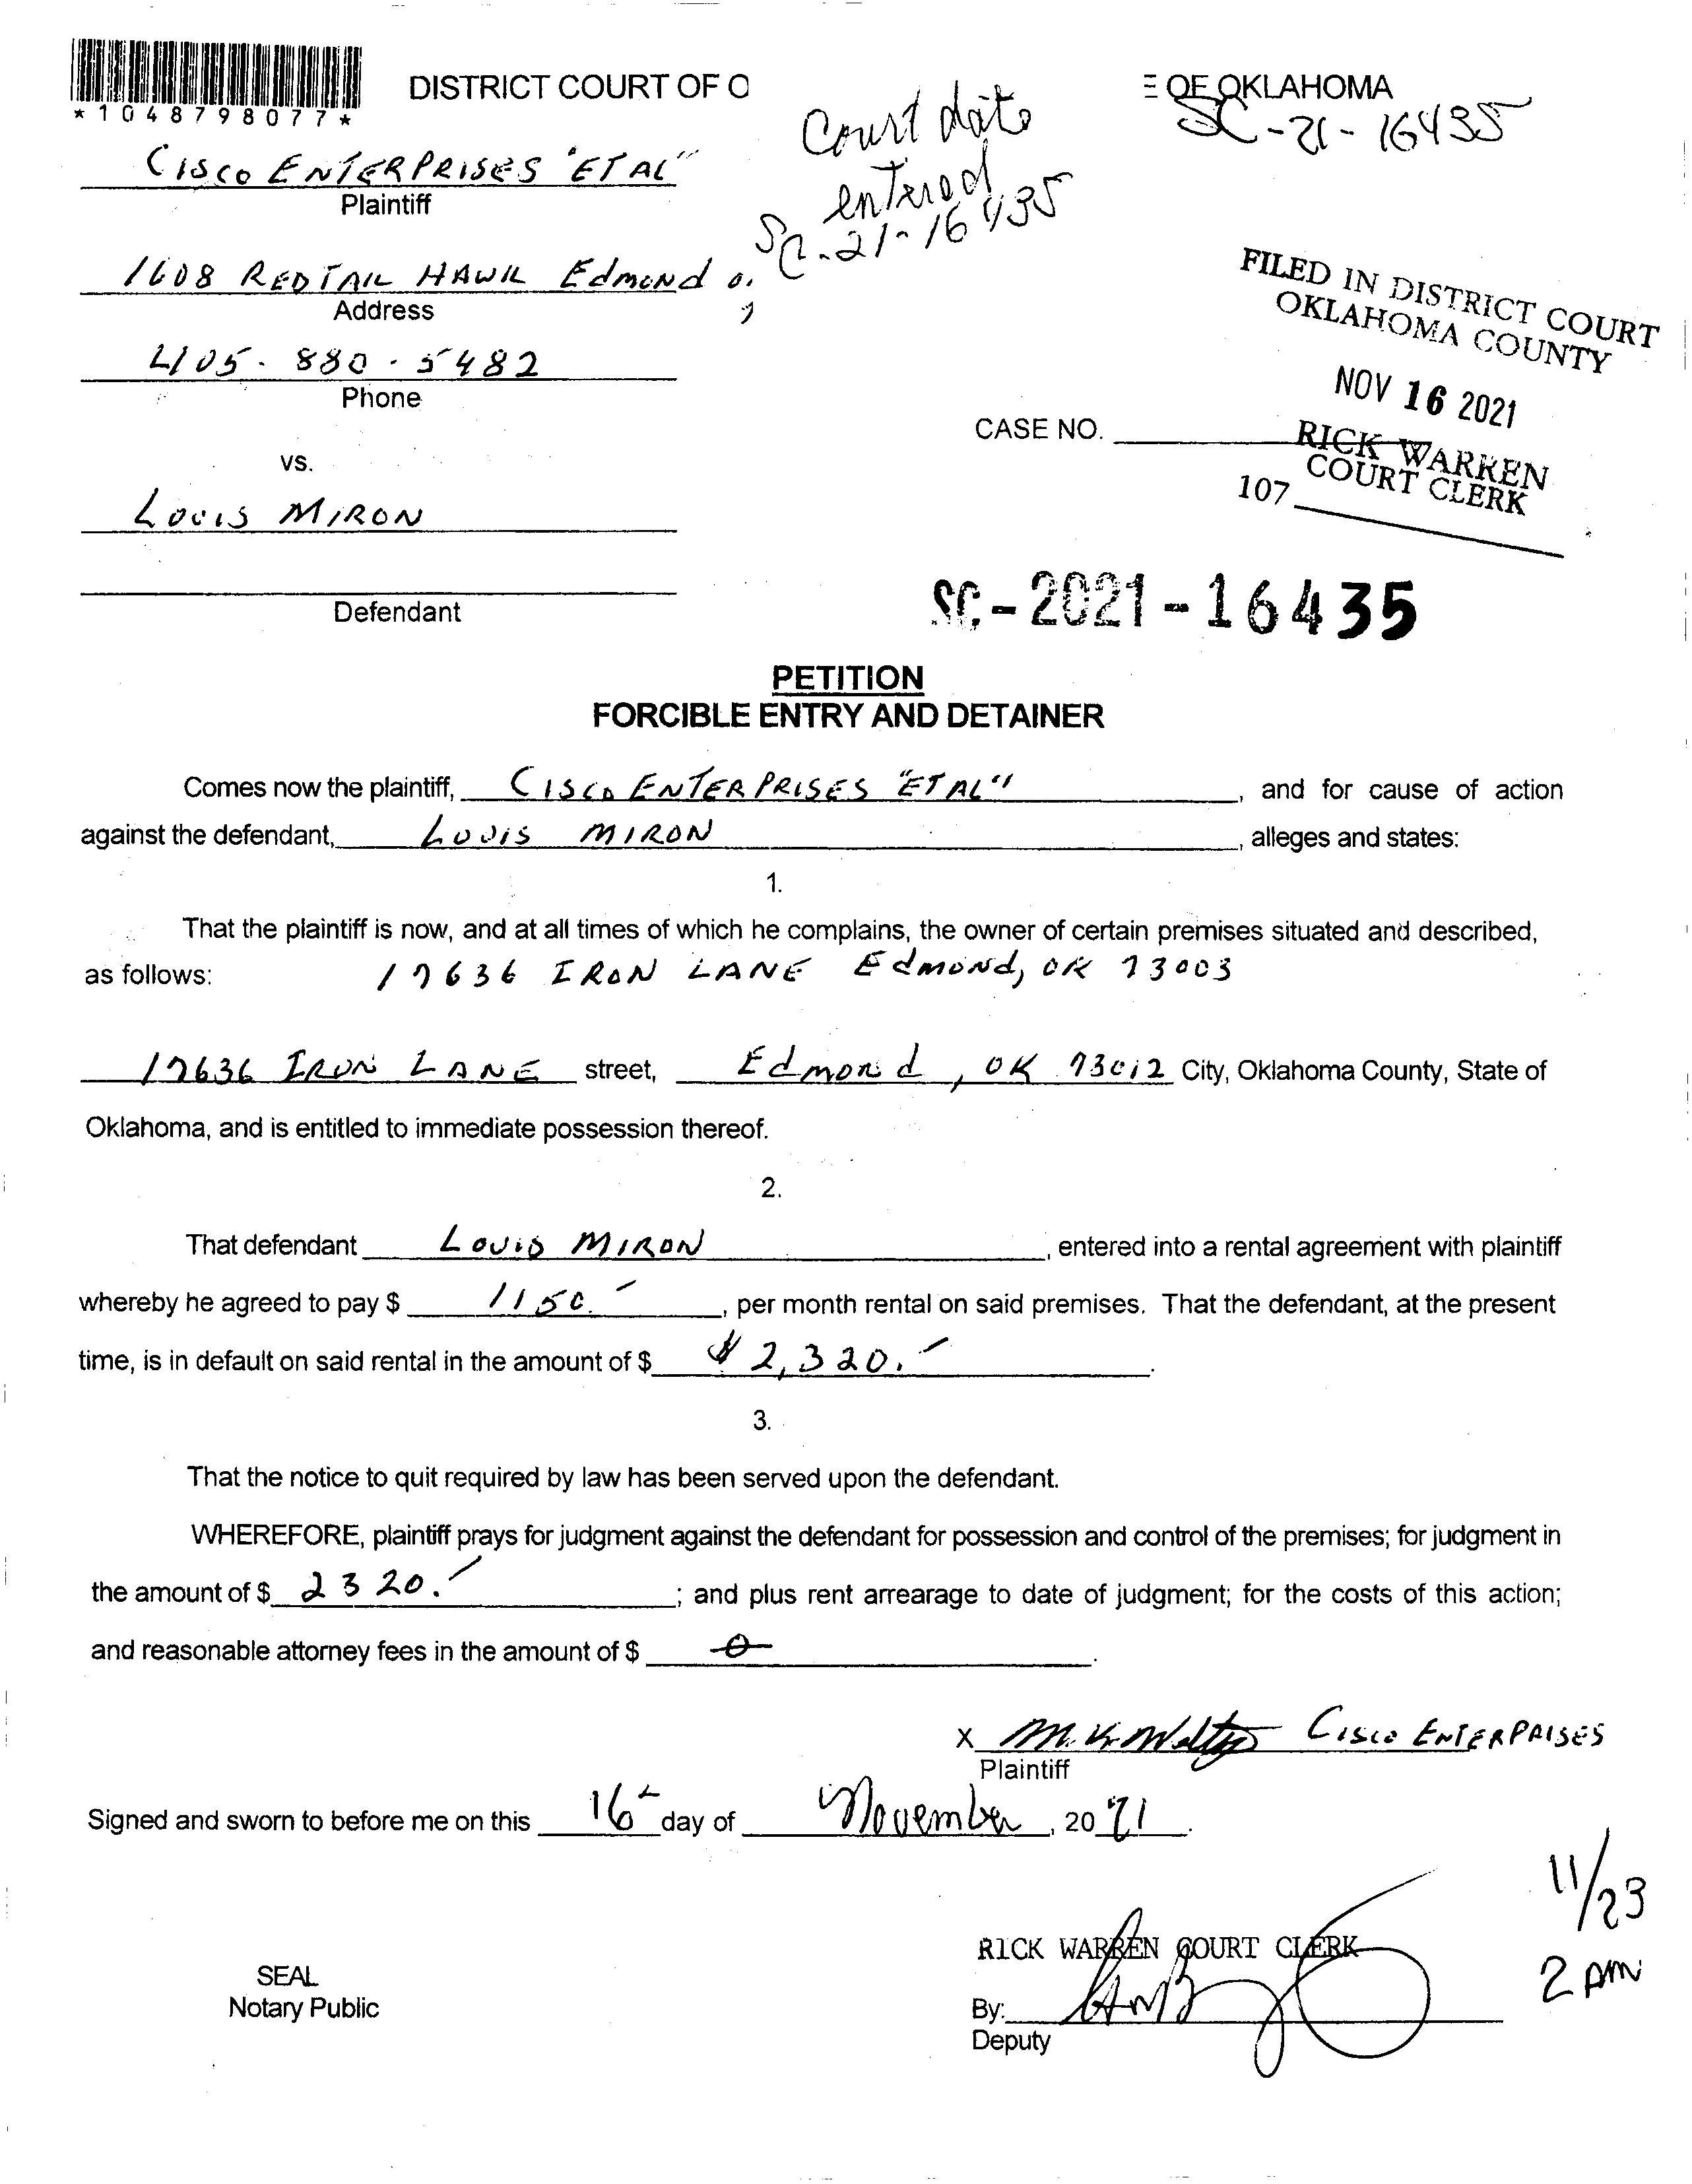 *1048798077*
DISTRICT COURT OF O
E OF OKLAHOMA
Court date
entered
SC-21-16435
SC-21-16435
CISCO ENTERPRISES "ET AL"
Plaintiff
1608 RED TAIL HAWK Edmond
Address
405-880-5482
Phone
vs.
LOUIS MIRON
Defendant
FILED IN DISTRICT COURT
OKLAHOMA COUNTY
NOV 16 2021
RICK WARREN
COURT CLERK
107
CASE NO.
SC-2021-16435
PETITION
FORCIBLE ENTRY AND DETAINER
Comes now the plaintiff, CISCO ENTERPRISES "ET AL", and for cause of action
against the defendant, LOUIS MIRON, alleges and states:
1.
That the plaintiff is now, and at all times of which he complains, the owner of certain premises situated and described,
as follows: 17636 IRON LANE Edmond, OK 73003
17636 IRON LANE street, Edmond, OK 73012 City, Oklahoma County, State of
Oklahoma, and is entitled to immediate possession thereof.
2.
That defendant LOUIS MIRON, entered into a rental agreement with plaintiff
whereby he agreed to pay $ 1150.-, per month rental on said premises. That the defendant, at the present
time, is in default on said rental in the amount of $ $2,320.-.
3.
That the notice to quit required by law has been served upon the defendant.
WHEREFORE, plaintiff prays for judgment against the defendant for possession and control of the premises; for judgment in
the amount of $ 2320.-; and plus rent arrearage to date of judgment; for the costs of this action;
and reasonable attorney fees in the amount of $ 0.
X CISCO ENTERPRISES
Plaintiff
Signed and sworn to before me on this 16 day of November, 2021.
11/23
2 AM
RICK WARREN COURT CLERK
SEAL
Notary Public
By:
Deputy